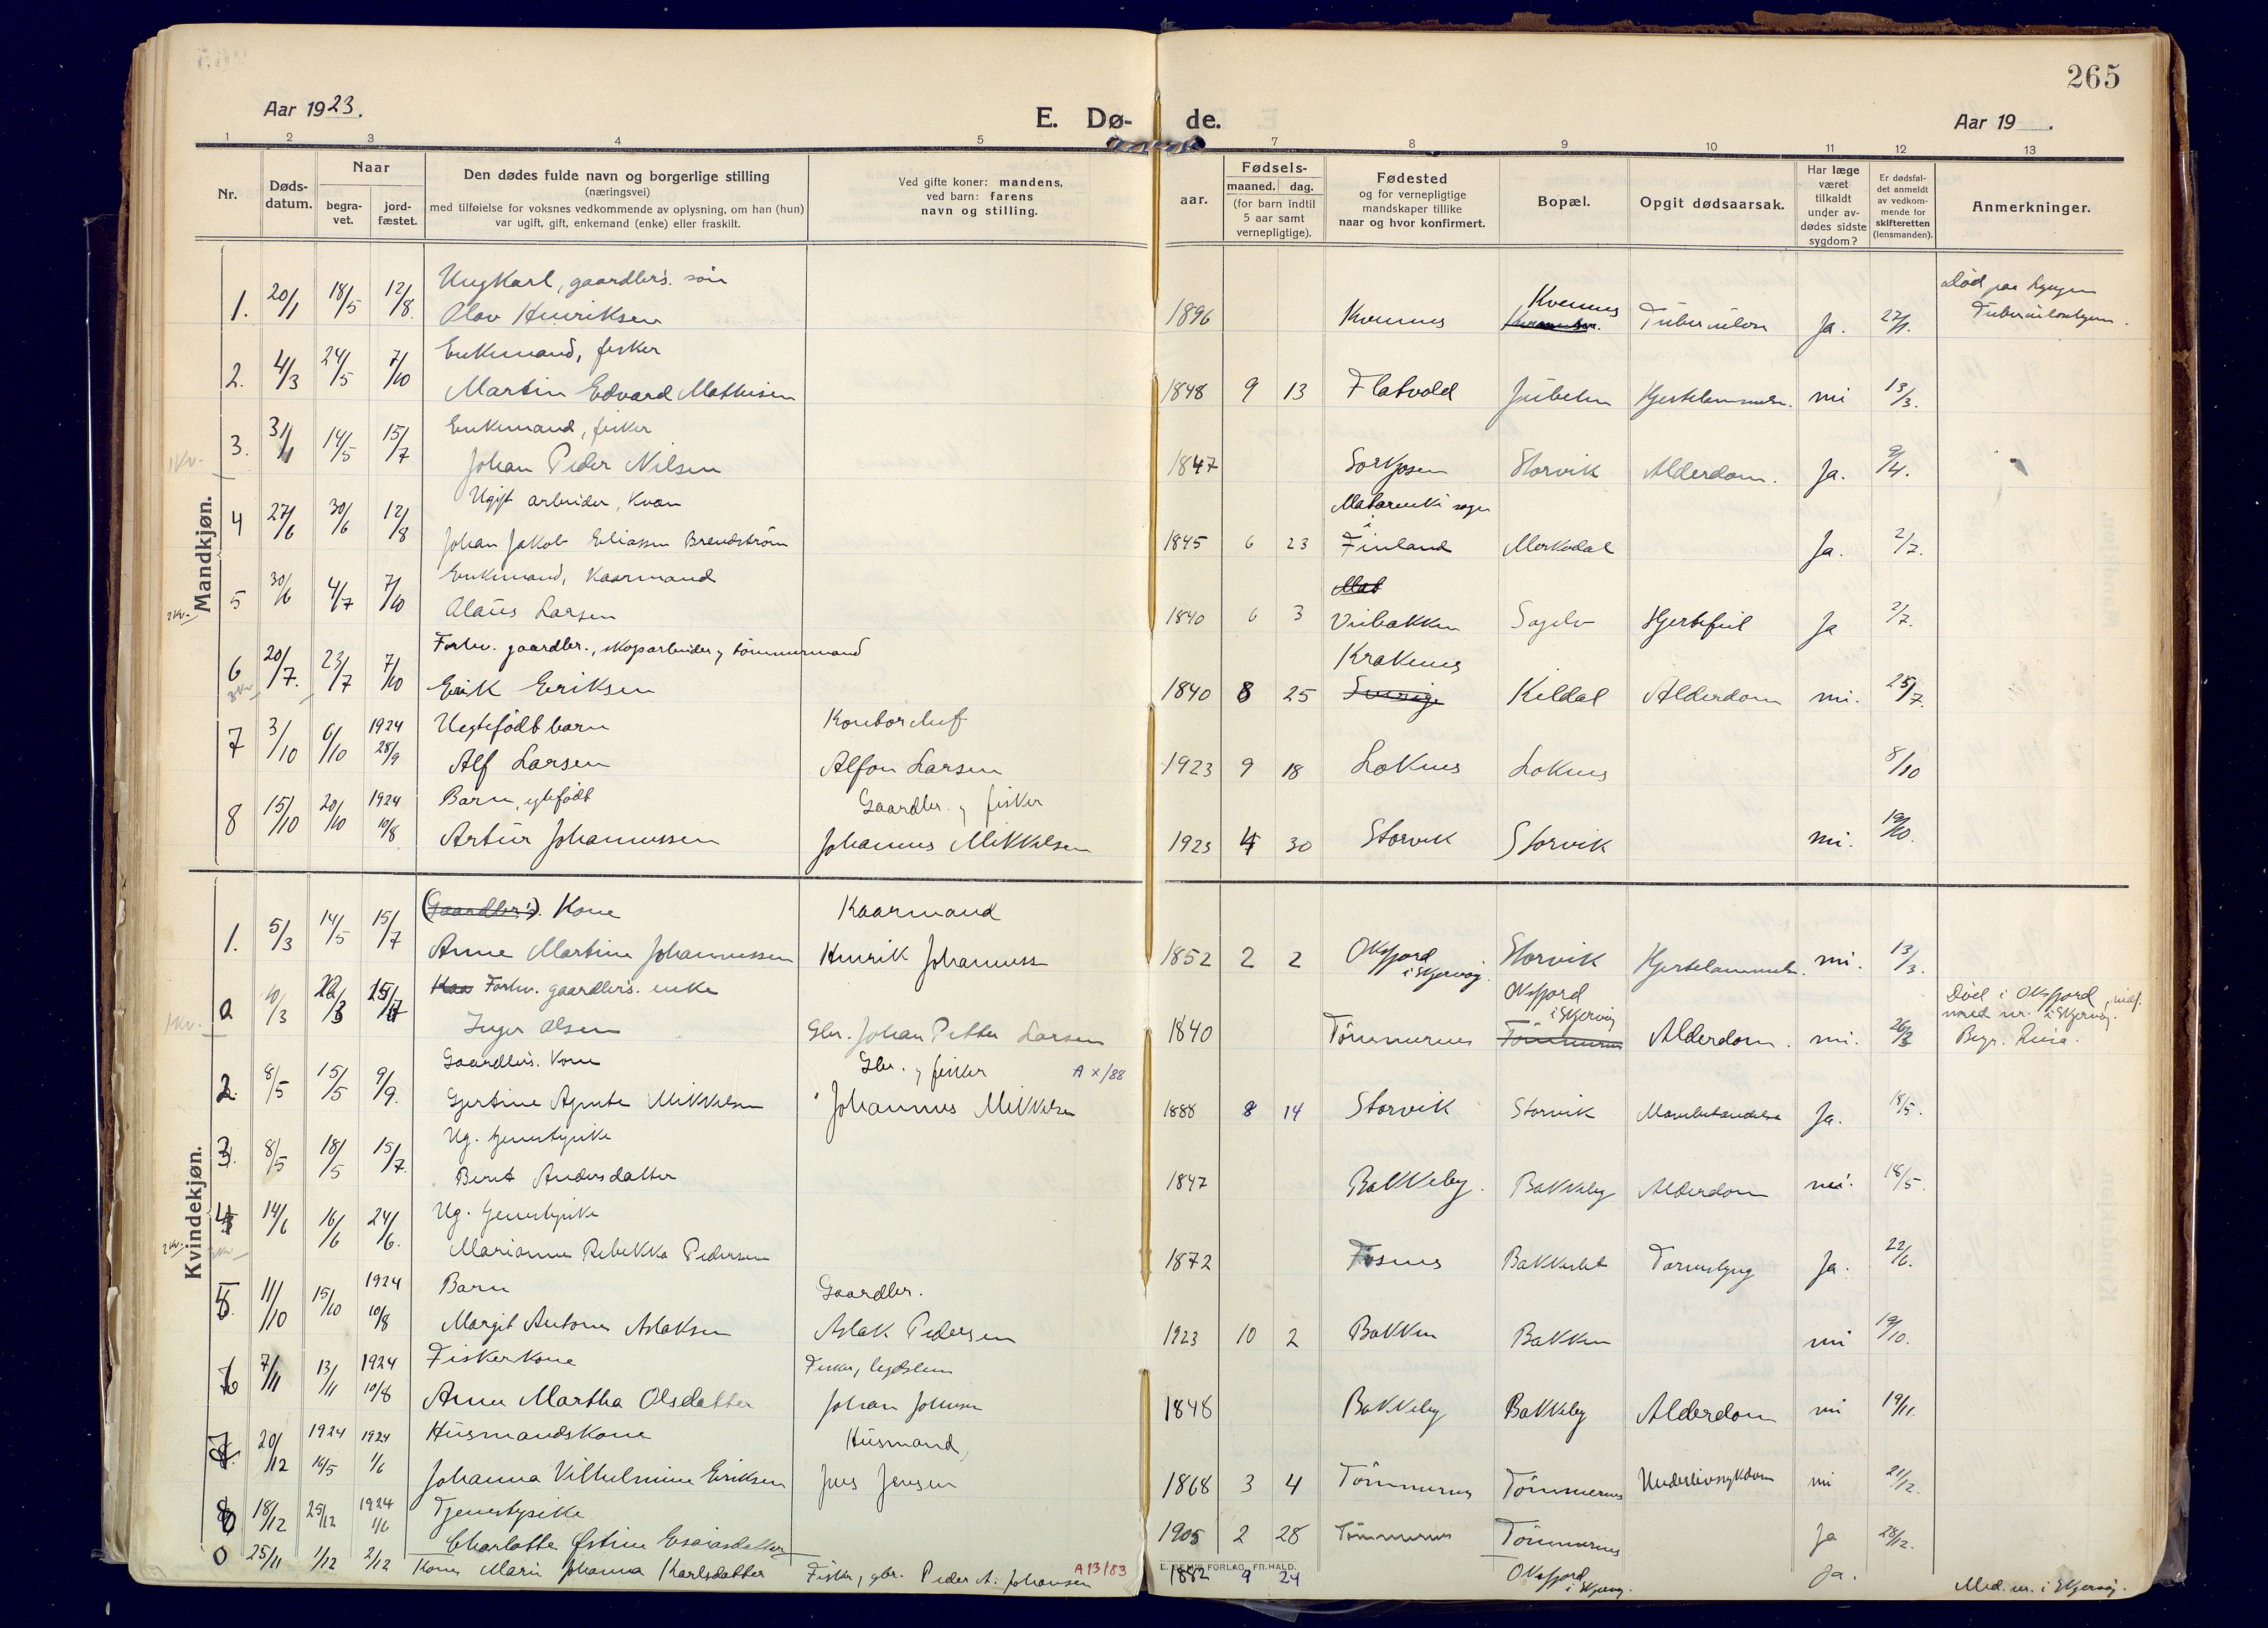 265
Aar 1923.
E. Dø- de.
Aar 19 .
1 2 3 4 5 7 8 9 10 11 12 13
Nr.
Døds-
datum.
Naar
begra-
vet.
jord-
fæstet.
Den dødes fulde navn og borgerlige stilling
(næringsvei)
med tilføielse for voksnes vedkommende av oplysning, om han (hun)
var ugift, gift, enkemand (enke) eller fraskilt.
Ved gifte koner: mandens,
ved barn: farens
navn og stilling.
aar.
Fødsels-
maaned. dag.
(for barn indtil
5 aar samt
vernepligtige).
Fødested
og for vernepligtige
mandskaper tillike
naar og hvor konfirmert.
Bopæl.
Opgit dødsaarsak.
Har læge
været
tilkaldt
under av-
dødes sidste
sygdom?
Er dødsfal-
det anmeldt
av vedkom-
mende for
skifteretten
(lensmanden).
Anmerkninger.
Mandkjøn.
Ungkarl, gaardbr's. søn Død paa Lyngen
1. 20/1 18/5 12/8 Olav Henriksen 1896 Kvennes Kvennes Tuberculose Ja. 27/1.
Enkemand, fisker
2. 4/3 24/5 7/10 Martin Edvard Mathisen 1848 9 13 Flatvold Jubelen Hjertelammelse. nei 13/3.
Enkemand, fisker
3. 31/1 14/5 15/7 Johan Peder Nilsen 1847 Sorkjosen Storvik Alderdom. Ja. 9/4.
Ugift arbeider, Kvæn
4 27/6 30/6 12/8 Johan Jakob Eliassen Brendström 1845 6 23 i Finland Merkedal Ja. 2/7.
Enkemand, Kaarmand
5 30/6 4/7 7/10 Olaus Larsen 1840 6 3 Sagelv Hjertefeil Ja 2/7.
Forhv. gaardbr., skogsarbeider og tømmermand
6 20/7. 23/7 7/10 Erik Eriksen 1840 8 25 Kraknes Sverige Kildal Alderdom nei. 25/7.
Uegtefödt barn Kontorchef
7 3/10 6/10 1924 28/9 Alf Larsen Alfon Larsen 1923 9 18 Loknes Loknes 8/10
Barn, egtefödt Gaardbr. og fisker
8 15/10 20/10 1924 10/8 Artur Johannessen Johannes Mikkelsen 1923 4 30 Storvik Storvik nei. 19/10.
Kvindekjøn.
(Gaardbr's). Kone Kaarmand
1. 5/3 14/5 15/7 Anne Martine Johannessen Henrik Johanness 1852 2 2 Oksfjord i Skjervøy. Storvik Hjertelammelse. nei. 13/3.
Kaa Forhv. gaardbr's. enke Oksfjord i Skjervøy Død i Oksfjord, indf.
med nr. i Skjervøy.
10/3 15/7 Inger Olsen Gbr. Johan Petter Larsen 1840 Tömmernes Tömmernes Alderdom. nei. 26/3 Begr. Reisa.
Gaardbr's. kone Gbr. og fisker A x/88
2. 8/5 15/5 9/9. Gjertine Agnete Mikkelsen Johannes Mikkelsen 1888 8 14 Storvik Storvik Ja. 18/5.
Ug. tjenestepike
3. 8/5 18/5 15/7. Berit Andersdatter 1847 Bakkeby. Bakkeby Alderdom nei. 18/5.
Ug. tjenestepike
4 14/6 16/6 24/6. Marianne Rebekka Pedersen 1872 Tosnes Bakkeslet Ja. 22/6.
Barn Gaardbr.
5. 11/10 15/10 1924 10/8 Margit Antone Aslaksen Aslak Pedersen 1923 10 2 Bakken Bakken nei 19/10.
Fiskerkone Fisker, legdslem
6 7/11 13/11 1924 10/8 Anne Martha Olsdatter Johan Johnsen 1848 Bakkeby Bakkeby Alderdom nei 19/11.
Husmandskone Husmand,
7 20/12 1924 16/5 1924 1/6 Johanna Vilhelmine Eriksen Jens Jensen 1868 3 4 Tömmernes Tömmernes Underlivssykdom nei 21/12.
Tjenestepike
8 18/12 25/12 1924 1/6 Charlotte Østine Esaiasdatter 1905 2 28 Tömmernes Tömmernes Ja 28/12.
0 25/11 1/12 2/12 Kone Marie Johanna Karlsdatter Fisker, gbr. Peder A. Johansen A 13/83 1882 9 24 Oksfjord i Skjervøy. Ja. Med. nr. i Skjervøy.
E. SEM'S FORLAG, FR.HALD.